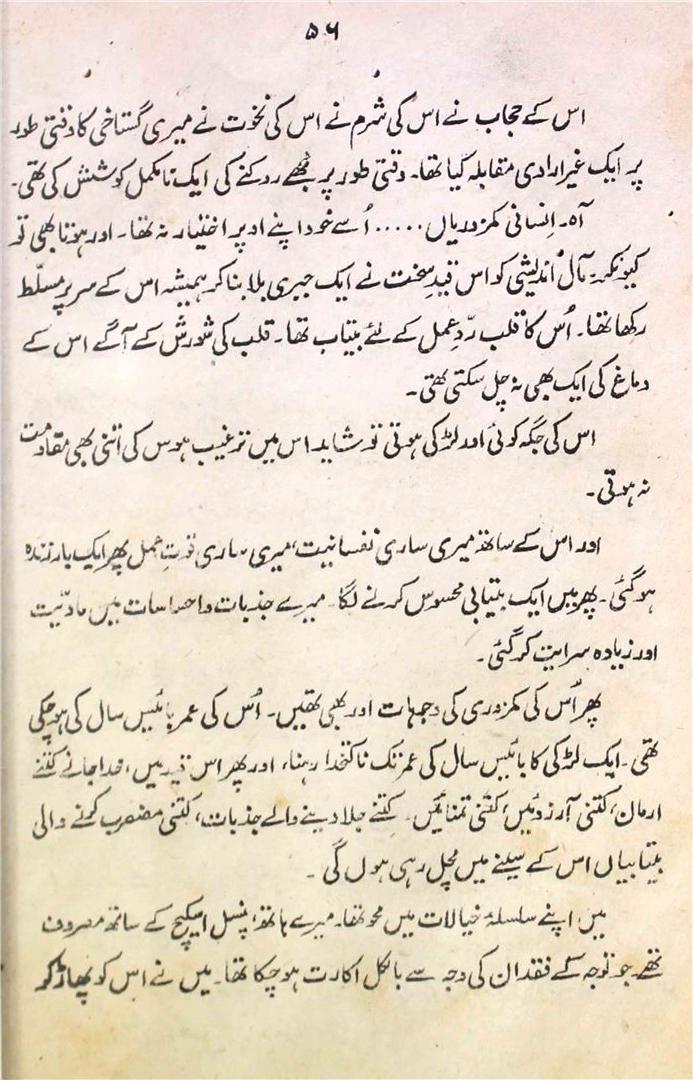 ۵۶
اس کے حجاب نے اس کی شرم نے اس کی نخوت نے میری گستاخی کا وقتی طور
پر ایک غیر ارادی مقابلہ کیا تھا۔ وقتی طور پر مجھے روکنے کی ایک نامکمل کوشش کی تھی۔
آہ۔ انسانی کمزوریاں ..... اُسے خود اپنے اوپر اختیار نہ تھا۔ اور ہوتا بھی تو
کیونکر۔ مآل اندیشی کو اس قیدِ سخت نے ایک جبری بلا بنا کر ہمیشہ اس کے سر پر مسلّط
رکھا تھا۔ اُس کا قلب ردِّ عمل کے لئے بیتاب تھا۔ قلب کی شورش کے آگے اس کے
دماغ کی ایک بھی نہ چل سکتی تھی۔
اس کی جگہ کوئی اور لڑکی ہوتی تو شاید اس میں ترغیب ہوس کی اتنی بھی مقاومت
نہ ہوتی۔
اور اس کے ساتھ میری ساری نفسانیت، میری ساری قوتِ عمل پھر ایک بار زندہ
ہو گئی۔ پھر میں ایک بیتابی محسوس کرنے لگا۔ میرے جذبات و احساسات میں مادّیت
اور زیادہ سرایت کر گئی۔
پھر اُس کی کمزوری کی وجہات اور بھی تھیں۔ اُس کی عمر بائیس سال کی ہو چکی
تھی۔ ایک لڑکی کا بائیس سال کی عمر تک ناکتخدا رہنا، اور پھر اس قید میں، خدا جانے کتنے
ارمان، کتنی آرزوئیں، کتنی تمنائیں۔ کتنے جلا دینے والے جذبات، کتنی مضطرب کرنے والی
بیتابیاں اس کے سینے میں مچل رہی ہوں گی ۔
میں اپنے سلسلۂ خیالات میں محو تھا۔ میرے ہاتھ، پنسل اسکیچ کے ساتھ مصروف
تھے۔ جو توجہ کے فقدان کی وجہ سے بالکل اکارت ہو چکا تھا۔ میں نے اس کو پھاڑ کر